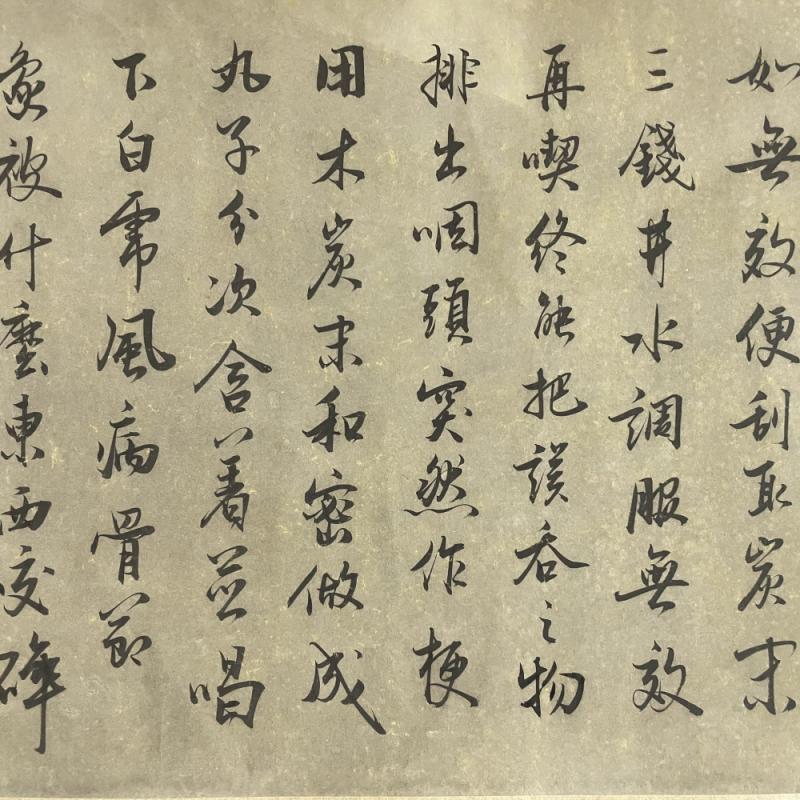 如無效便刮取炭末
三錢井水調服無效
再喫終能把誤吞之物
排出咽頭突然作梗
用木炭末和密做成
丸子分次含着並喝
下白乕風病骨節
象被什麼東西咬碎